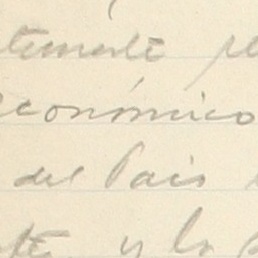 temente
económico
del Pais
y lo